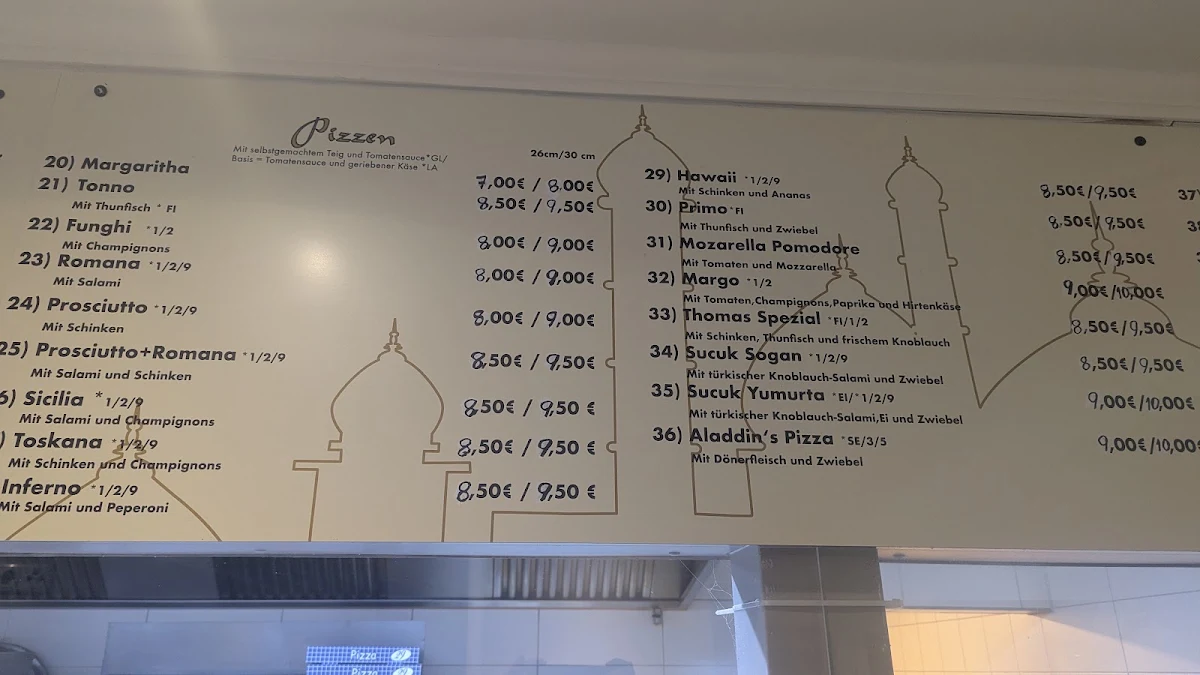 Pizzen
Mit selbstgemachtem Teig und Tomatensauce*GL/
Basis = Tomatensauce und geriebener Käse *LA
26cm/30 cm
20) Margaritha 7,00€ / 8.00€
21) Tonno 8,50€ / 9,50€
Mit Thunfisch * FI
22) Funghi *1/2 8,00€ / 9,00€
Mit Champignons
23) Romana *1/2/9 8,00€ / 9,00€
Mit Salami
24) Prosciutto *1/2/9 8,00€ / 9,00€
Mit Schinken
25) Prosciutto+Romana *1/2/9 8,50€ / 9,50€
Mit Salami und Schinken
6) Sicilia *1/2/9 8,50€ / 9,50 €
Mit Salami und Champignons
) Toskana *1/2/9 8,50€ / 9,50€
Mit Schinken und Champignons
Inferno *1/2/9 8,50€ / 9,50 €
Mit Salami und Peperoni
29) Hawaii *1/2/9 8,50€/9,50€
Mit Schinken und Ananas
30) Primo*FI 8,50€/9,50€
Mit Thunfisch und Zwiebel
31) Mozarella Pomodore 8,50€/9,50€
Mit Tomaten und Mozzarella
32) Margo *1/2 9,00€/10,00€
Mit Tomaten,Champignons,Paprika und Hirtenkäse
33) Thomas Spezial *FI/1/2 8,50€/9,50€
Mit Schinken, Thunfisch und frischem Knoblauch
34) Sucuk Sogan *1/2/9 8,50€/9,50€
Mit türkischer Knoblauch-Salami und Zwiebel
35) Sucuk Yumurta *EI/*1/2/9 9,00€/10,00€
Mit türkischer Knoblauch-Salami,Ei und Zwiebel
36) Aladdin's Pizza *SE/3/5 9,00€/10,00
Mit Dönerfleisch und Zwiebel
37
Pizza
Pizza